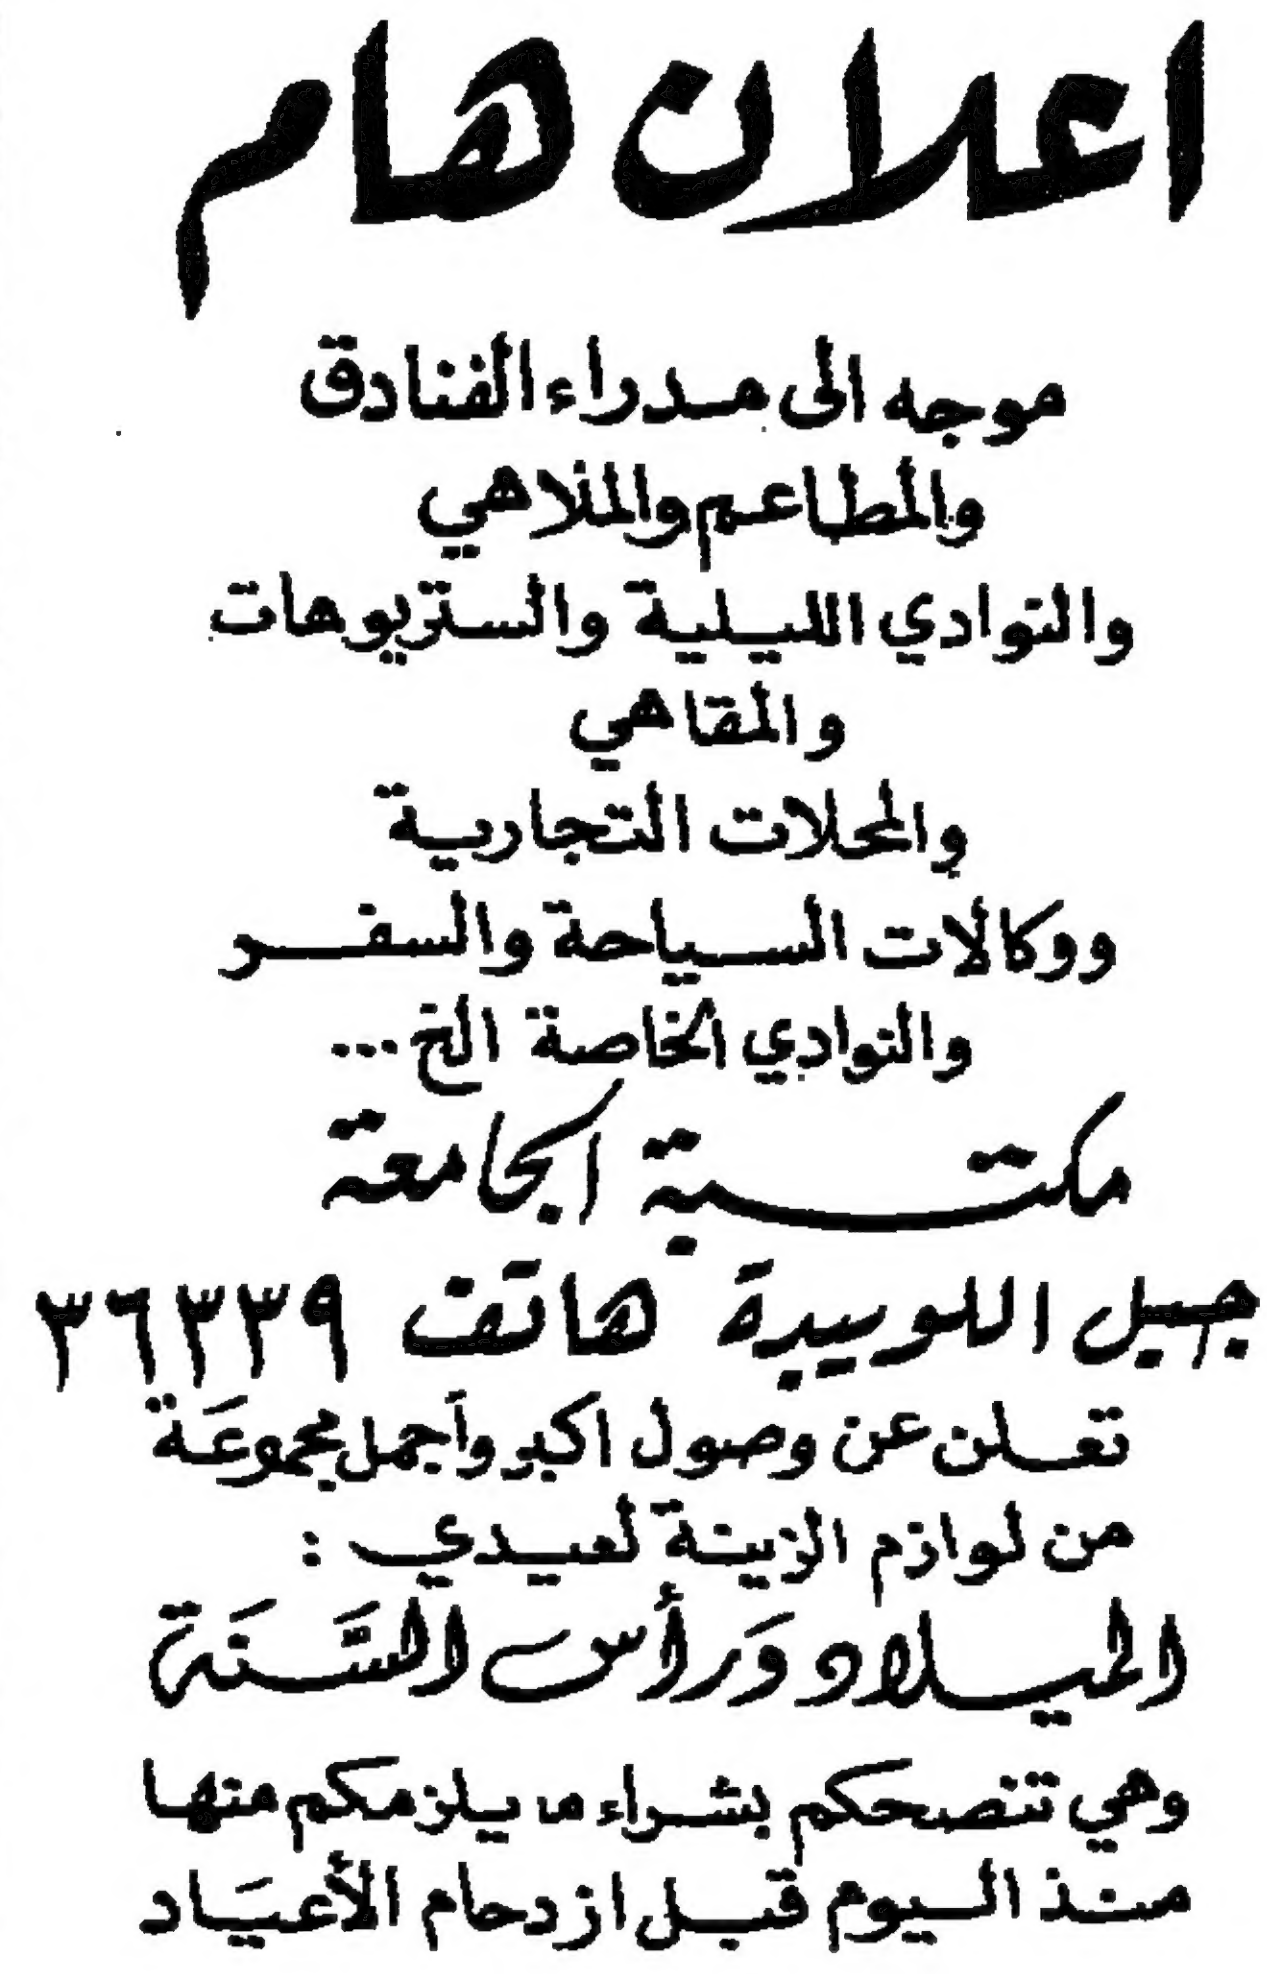 اعلان هام
موجه الى مدراء الفنادق
والمطاعم والملاهي
والنوادي الليلية والستريوهات
والمقاهي
والمحلات التجارية
ووكالات السياحة والسفر
والنوادي الخاصة الخ ...
مكتبة الجامعة
جبل اللويبدة هاتف ٣٦٣٣٩
تعلن عن وصول اكبر وأجمل مجموعَة
من لوازم الزينة لعيدي :
الميلاد وَرأس السَّنَة
وهي تنصحكم بشراء ما يلزمكم منها
منذ اليوم قبل ازدحام الأعيَاد